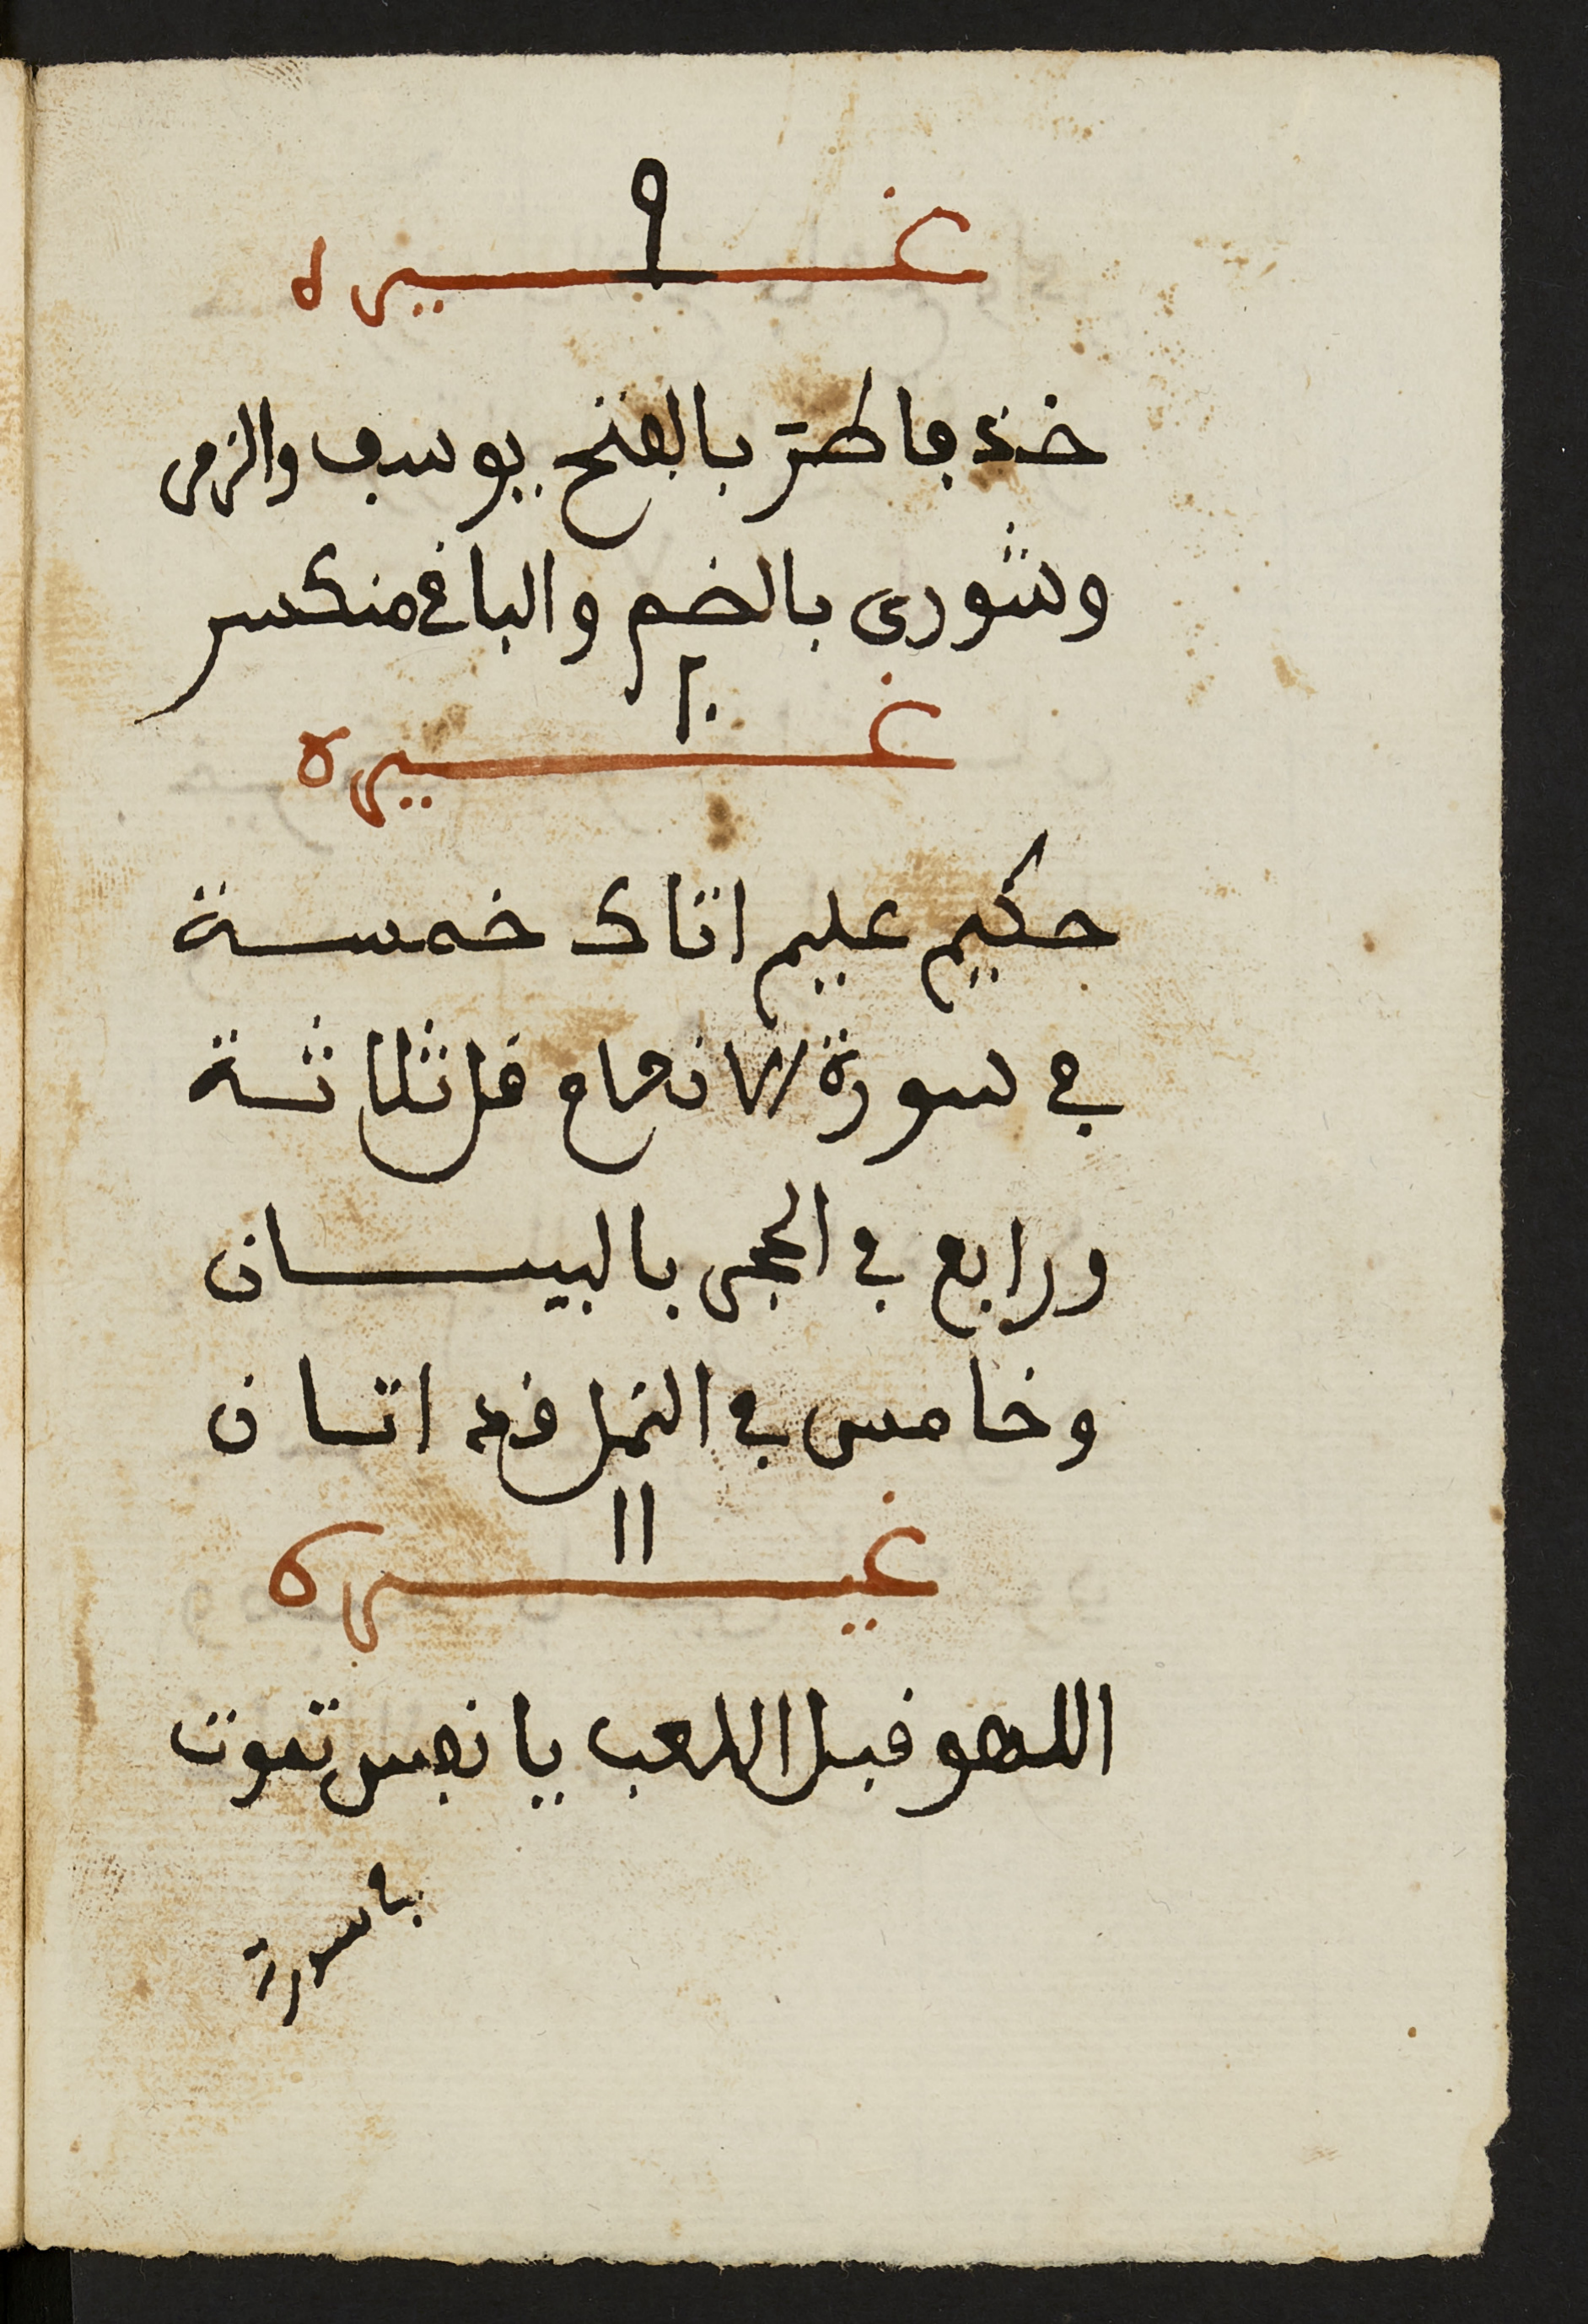 ٩
غيره
خذ فاطر بالفتح بيوسف والزمر
وشورى بالضم والباقي منكسر
١٠
غيره
حكيم عليم اتاك خمسة
في سورة الانعام قل ثلاثة
ورابع في الحجر بالبيان
وخامس في النمل قد اتان
١١
غيره
اللهو قبل اللعب يا نفس تموت
بسورة